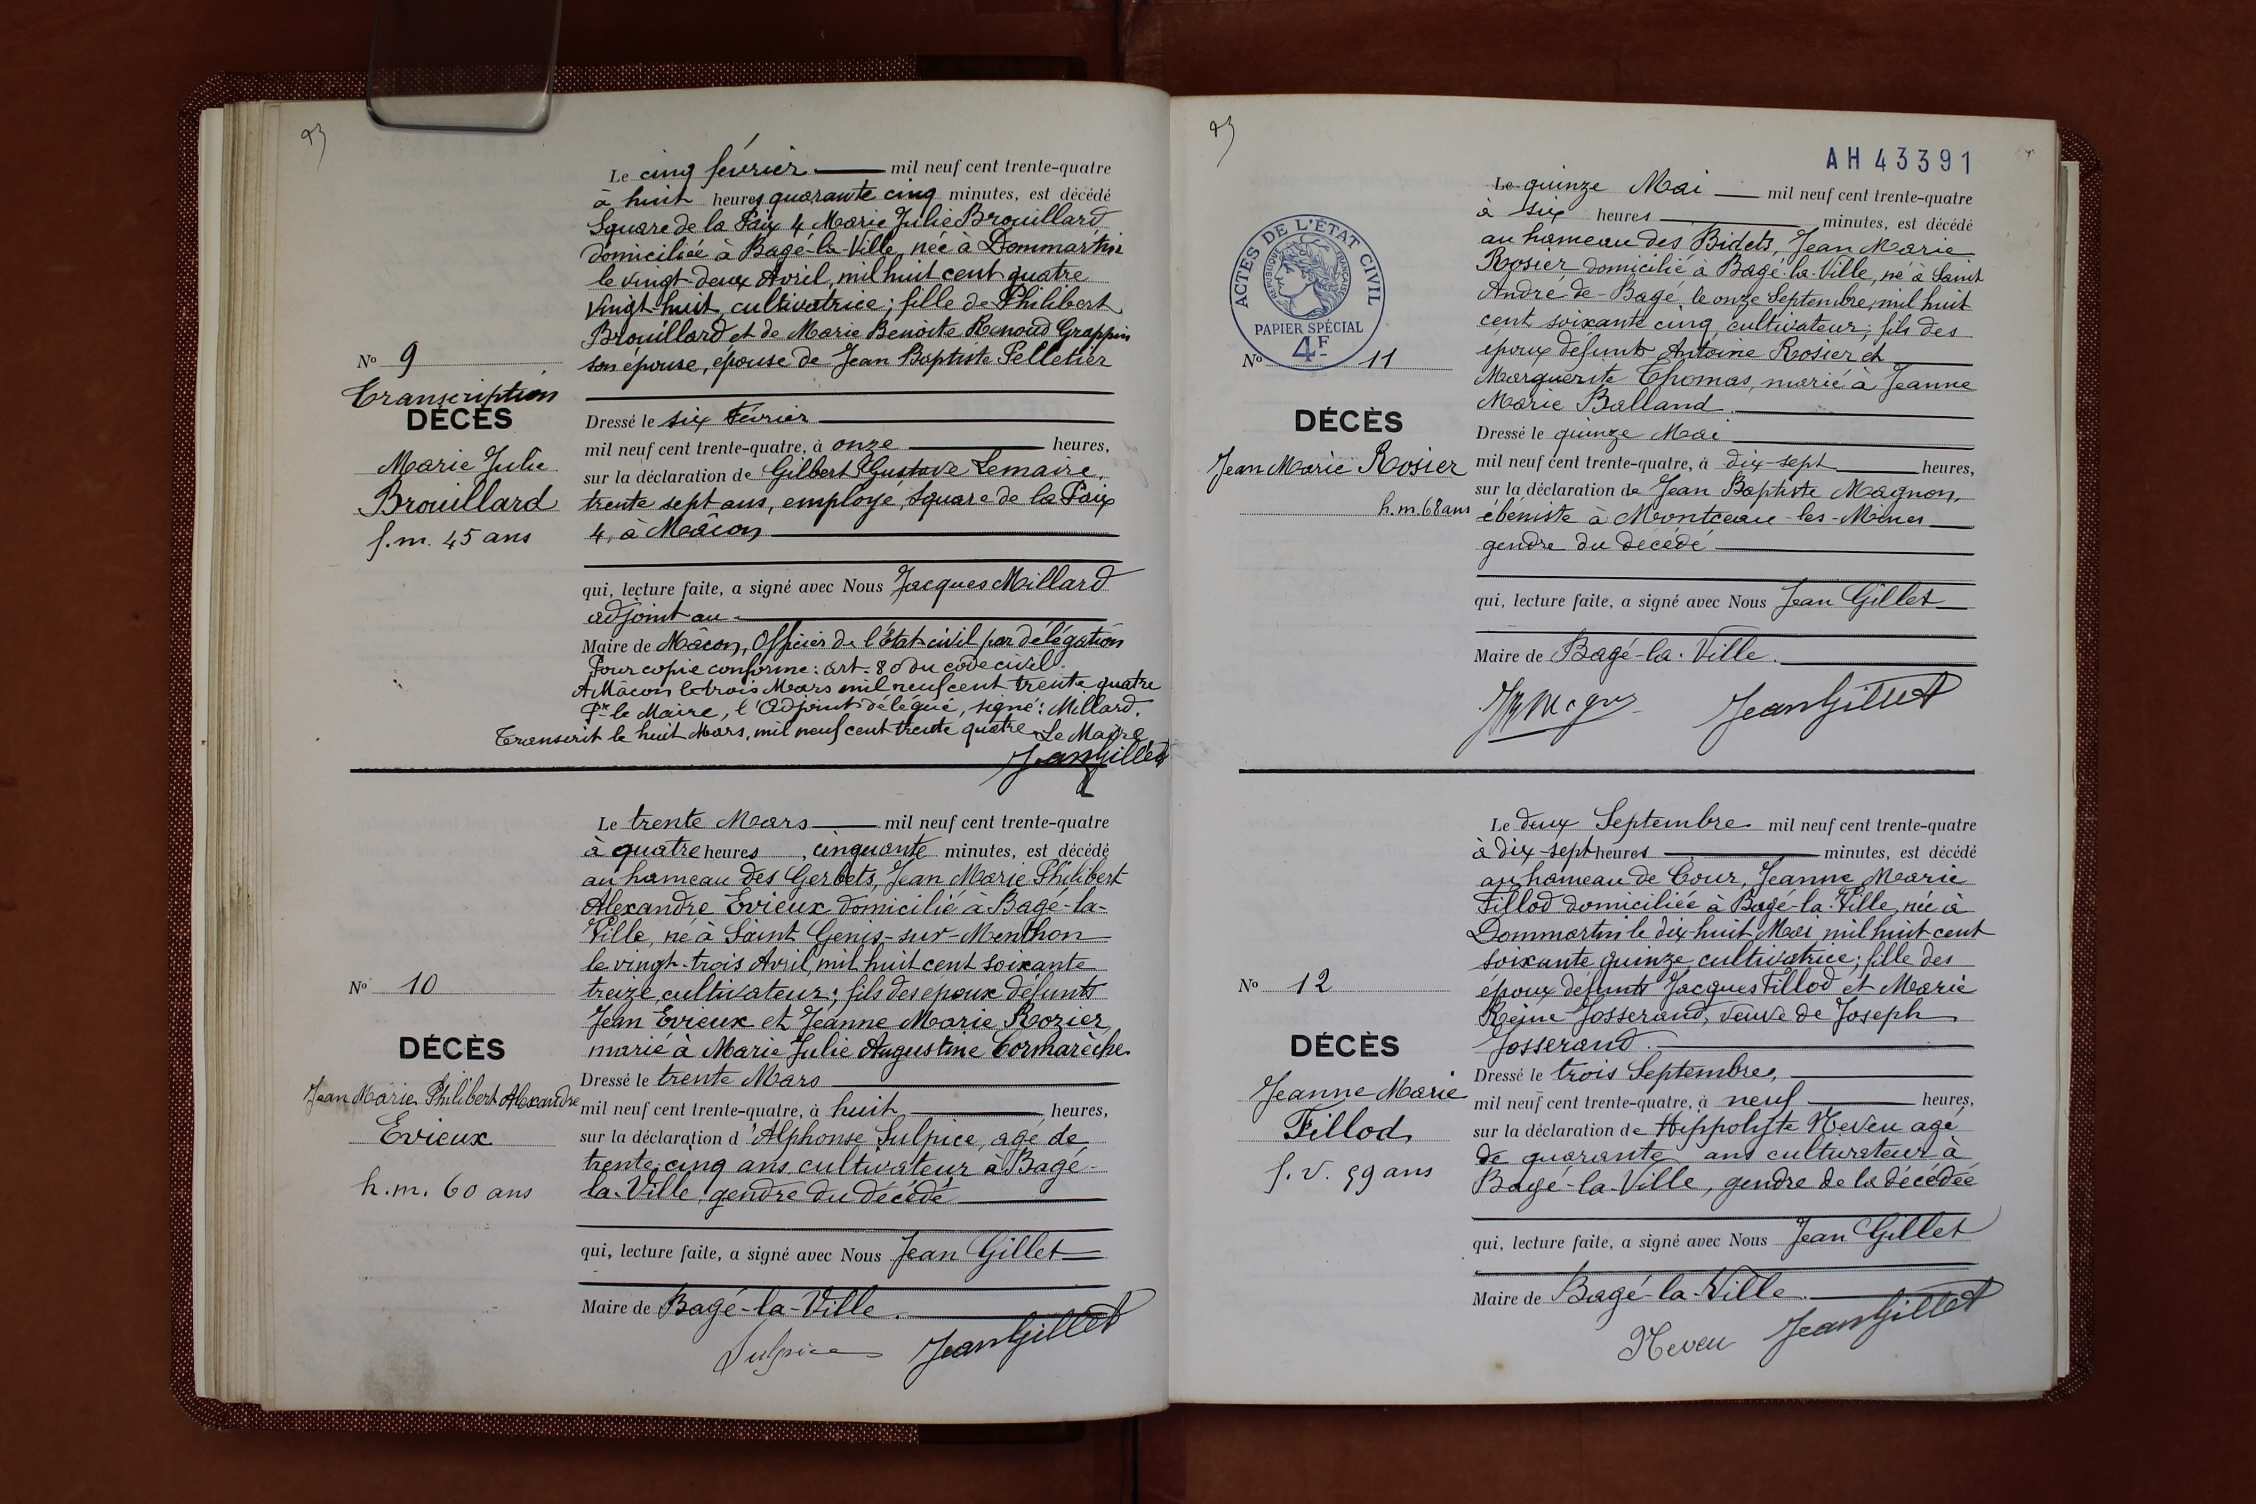 Le cinq février mil neuf cent trente-quatre
à huit heures quarante cinq minutes, est décédé
Square de la Paix 4 Marie Julie Brouillard
domiciliée à Bagé-la-Ville, née à Dommartin
le vingt-deux Avril, mil huit cent quatre
vingt-huit, cultivatrice; fille de Philibert
Brouillard et de Marie Benoite Renoud Grappin
son épouse, épouse de Jean Baptiste Pelletier
No 9
Transcription
DÉCÈS
Marie Julie
Brouillard
f.m. 45 ans
Dressé le six Février
mil neuf cent trente-quatre, à onze heures,
sur la déclaration de Gilbert Gustave Lemaire,
trente sept ans, employé, Square de la Paix
4, à Mâcon
qui, lecture faite, a signé avec Nous Jacques Millard
adjoint au
Maire de Mâcon, Officier de l'État-civil par délégation
Pour copie conforme: art. 80 du code civil.
A Mâcon le trois Mars mil neuf cent trente quatre
Pr le Maire, l'Adjoint délégué, signé: Millard.
Transcrit le huit Mars, mil neuf cent trente quatre Le Maire
Jean Gillet
Le trente Mars mil neuf cent trente-quatre
à quatre heures, cinquante minutes, est décédé
au hameau des Gerbets, Jean Marie Philibert
Alexandre Evieux domicilié à Bagé-la-
Ville, né à Saint Genis-sur-Menthon
le vingt-trois Avril, mil huit cent soixante
treize, cultivateur; fils des époux défunts
Jean Evieux et Jeanne Marie Rozier
marié à Marie Julie Augustine Cormarèche
No 10
DÉCÈS
Jean Marie Philibert Alexandre
Evieux
h.m. 60 ans
Dressé le trente Mars
mil neuf cent trente-quatre, à huit heures,
sur la déclaration d'Alphonse Sulpice, agé de
trente-cinq ans cultivateur à Bagé-
la-Ville, gendre du décédé
qui, lecture faite, a signé avec Nous Jean Gillet
Maire de Bagé-la-Ville.
Sulpice Jean Gillet
AH 43391
Le quinze Mai mil neuf cent trente-quatre
à six heures minutes, est décédé
au hameau des Bidets, Jean Marie
Rosier domicilié à Bagé-la-Ville, né à Saint
André-de-Bagé, le onze Septembre, mil huit
cent soixante cinq, cultivateur; fils des
époux défunts Antoine Rosier et
Marguerite Thomas, marié à Jeanne
Marie Balland.
ACTES DE L'ÉTAT CIVIL
RÉPUBLIQUE FRANÇAISE
PAPIER SPÉCIAL
4F
No 11
DÉCÈS
Jean Marie Rosier
h.m. 68 ans
Dressé le quinze Mai
mil neuf cent trente-quatre, à dix-sept heures,
sur la déclaration de Jean Baptiste Magnon,
ébéniste à Montceau-les-Mines
gendre du décédé
qui, lecture faite, a signé avec Nous Jean Gillet
Maire de Bagé-la-Ville.
Jean Gillet
Le deux Septembre mil neuf cent trente-quatre
à dix-sept heures minutes, est décédé
au hameau de Cour, Jeanne Marie
Fillod domiciliée à Bagé-la-Ville, née à
Dommartin le dix-huit Mai mil huit cent
soixante quinze, cultivatrice; fille des
époux défunts Jacques Fillod et Marie
Reine Josserand, veuve de Joseph
Josserand.
No 12
DÉCÈS
Jeanne Marie
Fillod
f.v. 59 ans
Dressé le trois Septembre,
mil neuf cent trente-quatre, à neuf heures,
sur la déclaration de Hippolyte Neveu agé
de quarante ans cultivateur à
Bagé-la-Ville, gendre de la décédée
qui, lecture faite, a signé avec Nous Jean Gillet
Maire de Bagé-la-Ville.
Neveu Jean Gillet